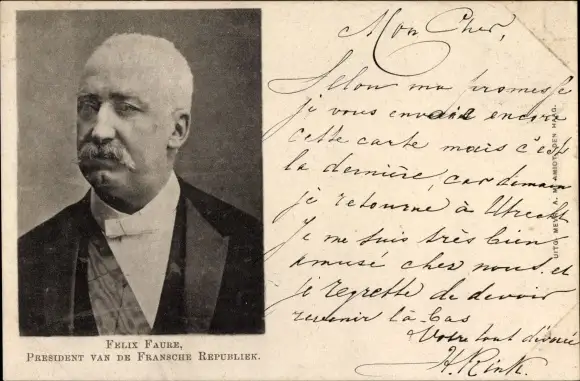 Mon Cher,
Selon ma promesse
je vous envoie encore
cette carte mais c'est
la dernière, car demain
je retourne à Utrecht
Je me suis très bien
amusé chez nous et
je regrette de devoir
revenir là-bas
Votre tout dévoué
H. Rink.
FELIX FAURE,
PRESIDENT VAN DE FRANSCHE REPUBLIEK.
UITG. MEVR. A. AMIOT, DEN HAAG.